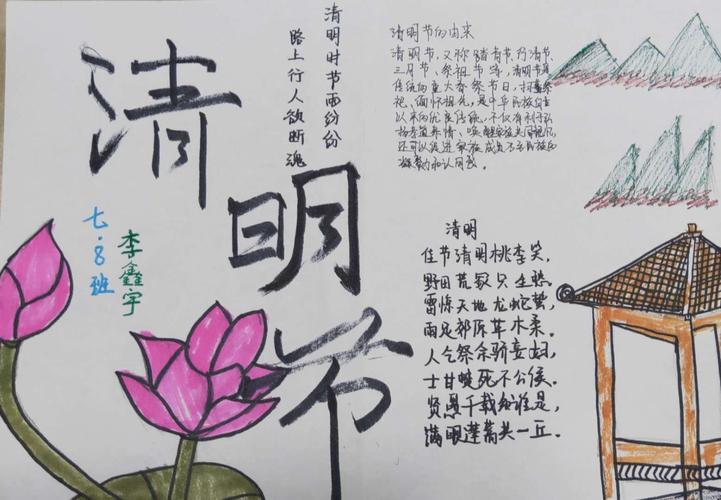 清明节
清明时节雨纷纷
路上行人欲断魂
七.8班
李鑫宇
清明节的由来
清明节,又称踏青节、行清节、
三月节、祭祖节等,清明节是
传统的重大春祭节日,扫墓祭
祀、缅怀祖先,是中华民族自古
以来的优良传统,不仅有利于弘
扬孝道亲情、唤醒家族共同记忆,
还可以促进家族成员乃至民族的
凝聚力和认同感。
清明
佳节清明桃李笑,
野田荒冢只生愁。
雷惊天地龙蛇蛰,
雨足郊原草木柔。
人乞祭余骄妾妇,
士甘焚死不公侯。
贤愚千载知谁是,
满眼蓬蒿共一丘。